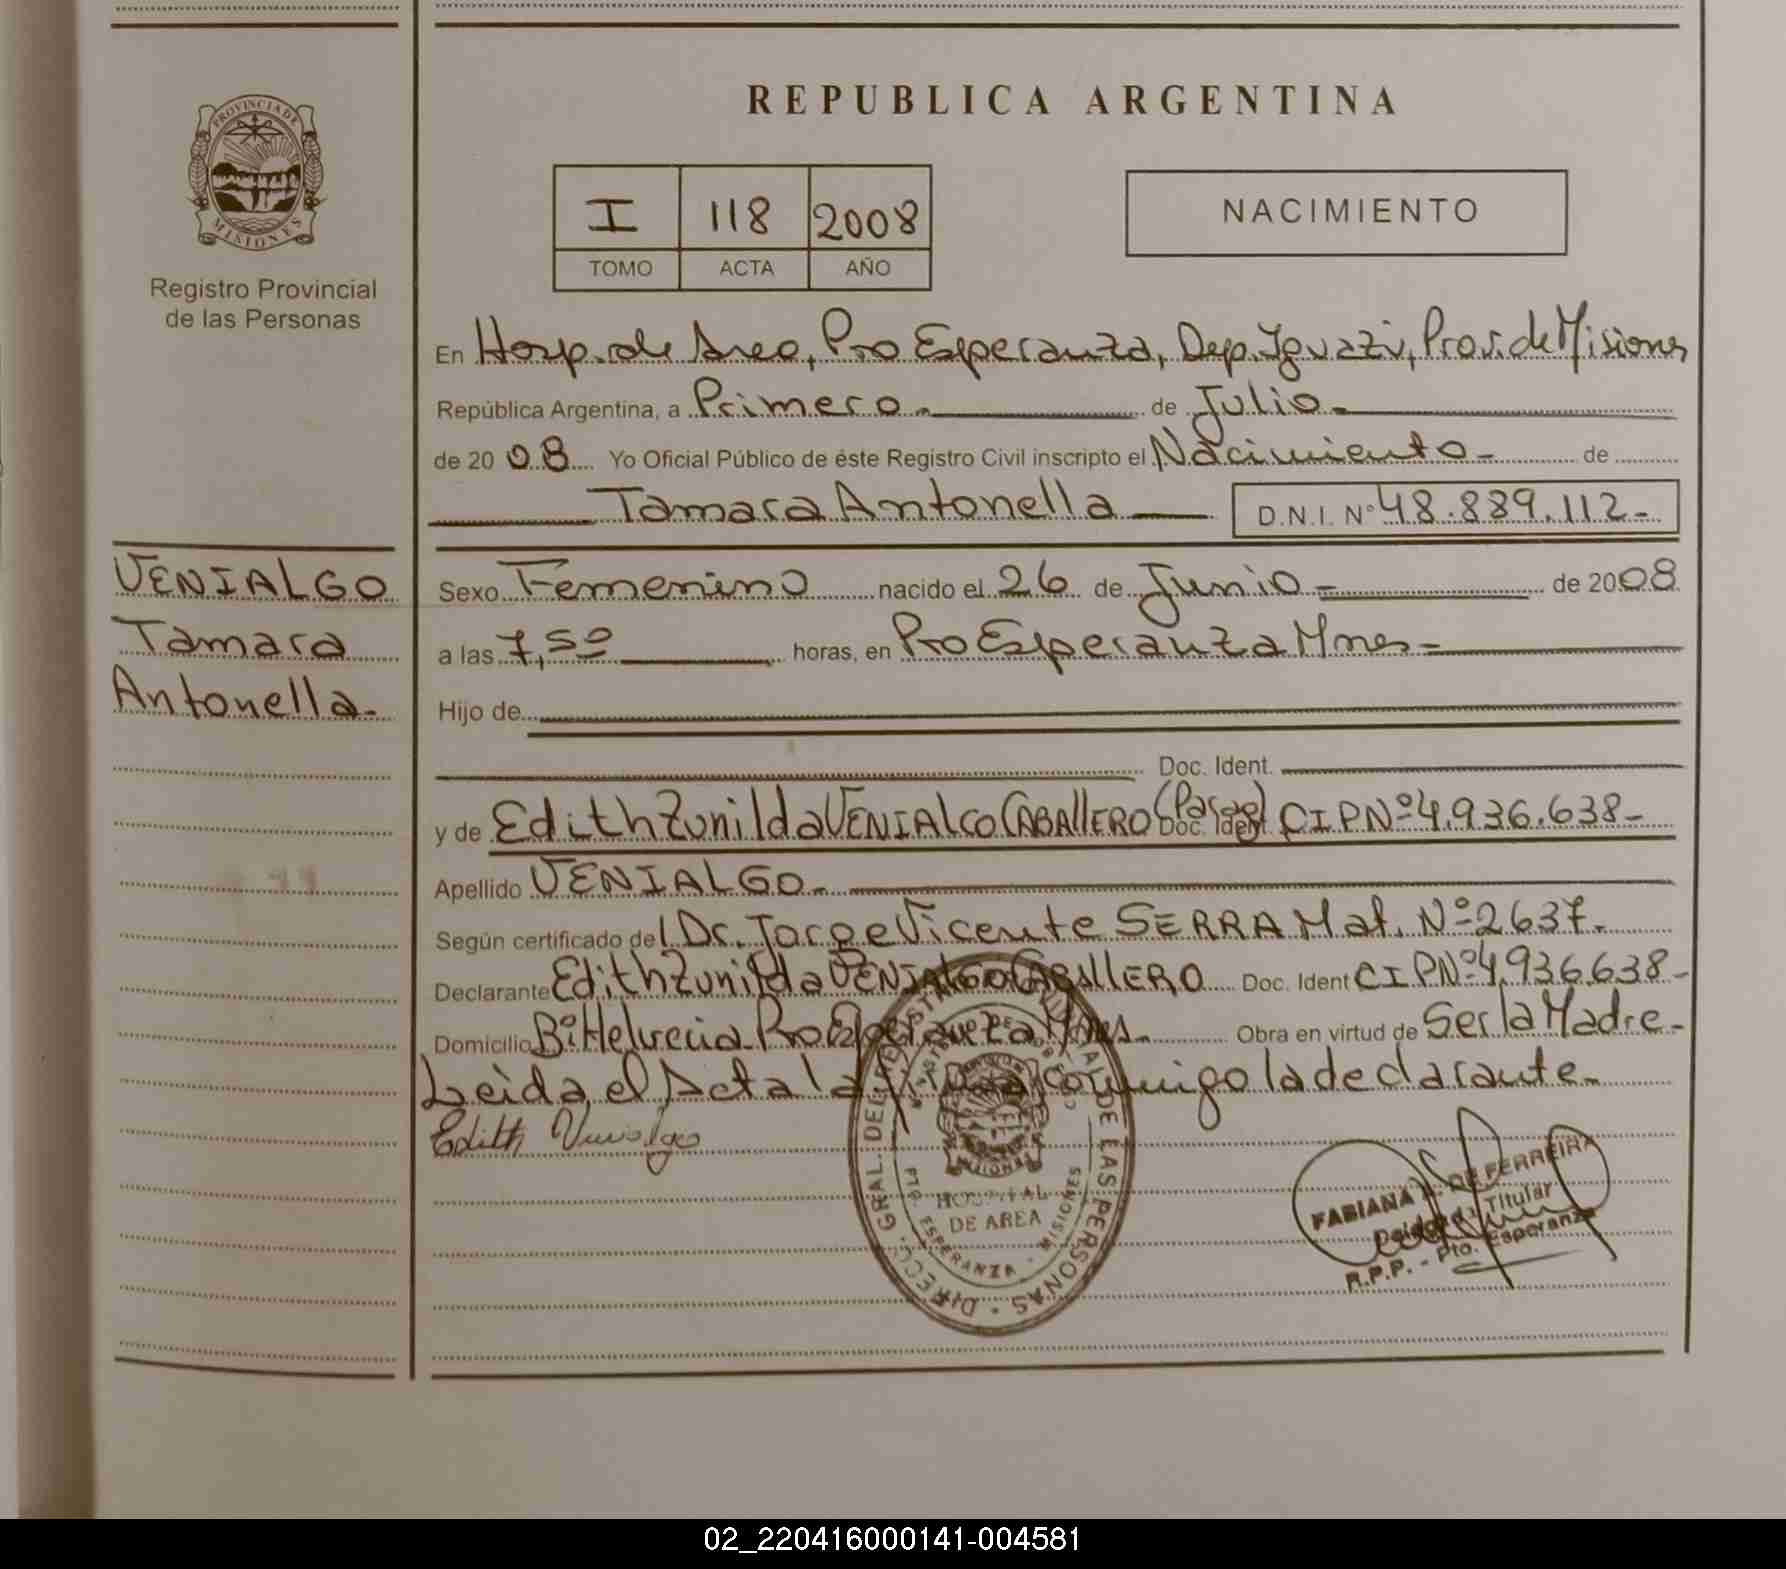 REPUBLICA ARGENTINA
PROVINCIA DE
MISIONES
Registro Provincial
de las Personas
I 118 2008
TOMO ACTA AÑO
NACIMIENTO
En Hosp. de Area, Pto Esperanza, Dep. Iguazú, Prov. de Misiones
República Argentina, a Primero.- de Julio.-
de 2008 Yo Oficial Público de éste Registro Civil inscripto el Nacimiento- de
Tamara Antonella D.N.I. Nº 48.889.112-
VENIALGO
Tamara
Antonella.-
Sexo Femenino nacido el 26 de Junio- de 2008
a las 7,50 horas, en Pto Esperanza Mnes-
Hijo de
Doc. Ident.
y de Edith Zunilda VENIALGO CABALLERO (Parag) Doc. Ident. CIPNº 4.936.638-
Apellido VENIALGO.-
Según certificado del Dr. Jorge Vicente SERRA Mat. Nº 2637.-
Declarante Edith Zunilda VENIALGO CABALLERO Doc. Ident CIPNº 4.936.638-
Domicilio Bº Helvecia Pto Esperanza Mnes.- Obra en virtud de Ser la Madre-
Leída el Acta la firma conmigo la declarante.-
Edith Venialgo
DIRECC. GRAL. DEL REGISTRO PROVINCIAL DE LAS PERSONAS
MISIONES
HOSPITAL
DE AREA
PTO. ESPERANZA - MISIONES
FABIANA DE FERREIRA
Delegada Titular
R.P.P. - Pto. Esperanza
02_220416000141-004581